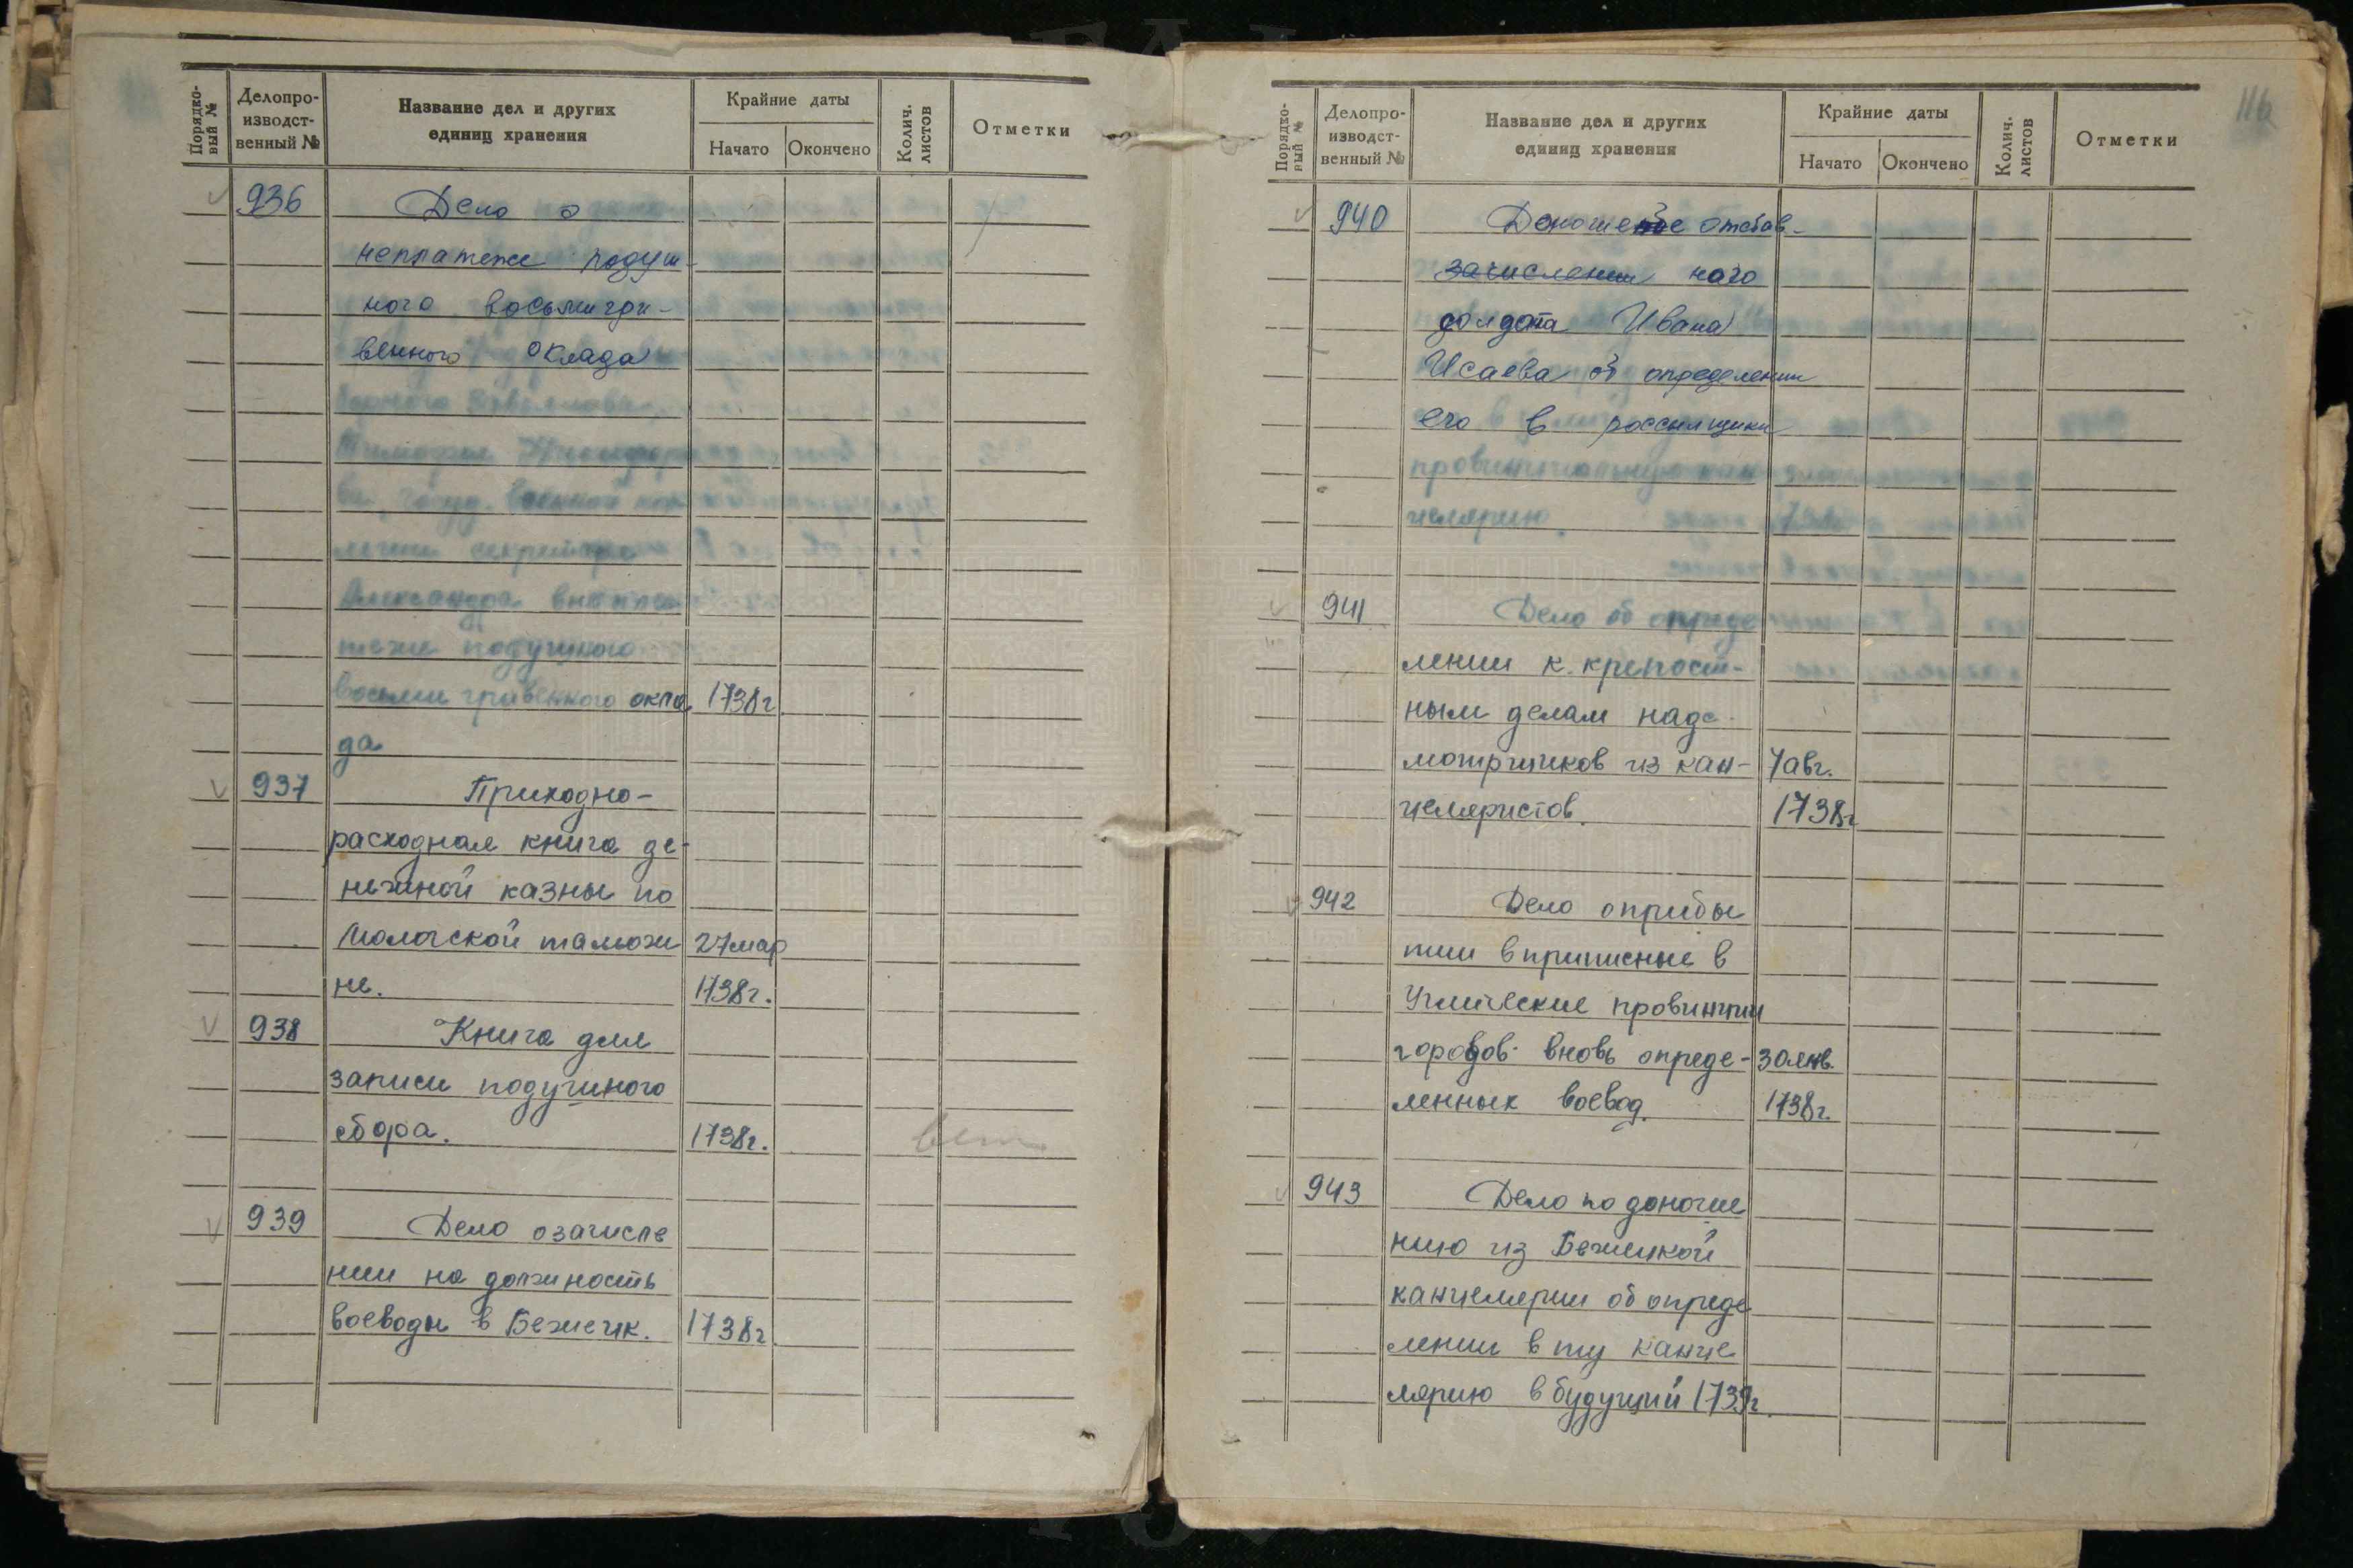 Порядко-
вый №
Делопро-
изводст-
венный №
Название дел и других
единиц хранения
Крайние даты
Начато
Окончено
Колич.
листов
Отметки
936 Дело о
неплатеже подуш-
ного восьмигри-
венного оклада
секретаря
Александра в непла
теже подушного
восьми гривенного окла 1738г
да
937 Приходно-
расходная книга де-
нежной казны по
Мологской таможн 27 мар
не. 1738г.
938 Книга для
записи подушного
сбора. 1738г.
939 Дело о зачисле
нии на должность
воеводы в Бежецк. 1738г
116
Порядко-
вый №
Делопро-
изводст-
венный №
Название дел и других
единиц хранения
Крайние даты
Начато
Окончено
Колич.
листов
Отметки
940 отстав-
зачислении ного
солдата Ивана
Исаева об определении
его в россыльщики
провинциальную кан
целярию.
941 Дело об опреде
лении к крепост-
ным делам надс
мотрщиков из кан- 7 авг.
целяристов. 1738г
942 Дело о прибы
тии в приписные в
Угличские провинции
городов вновь опреде- 30 янв.
ленных воевод. 1738г.
943 Дело по доноше
нию из Бежецкой
канцелярии об опреде
лении в ту канце
лярию в будущий 1739г.